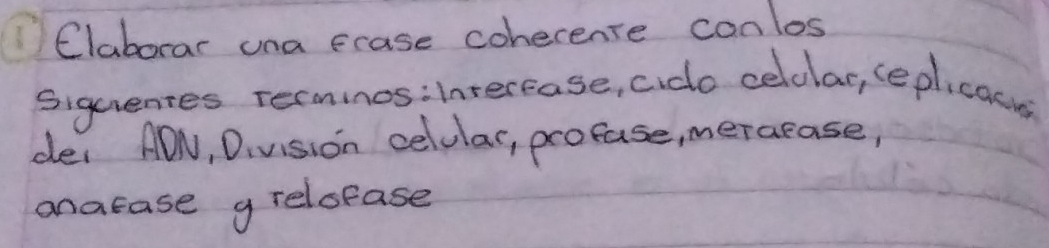 1) Elaborar una frase coherente con los
siguientes terminos: Interfase, ciclo celular, replicación
del ADN, División celular, profase, metafase,
anafase y telofase